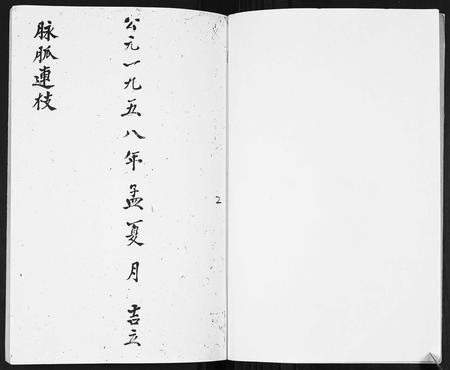 公元一九五八年孟夏月 吉立
脉胍連枝
2